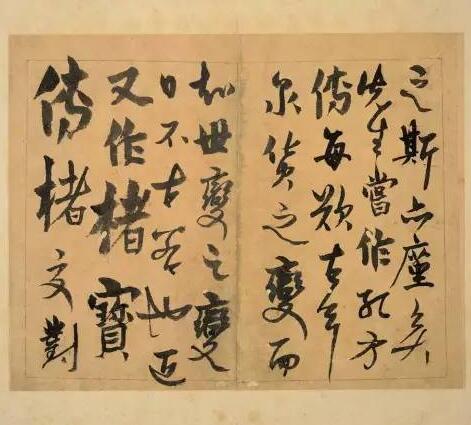 之斯座矣
先生嘗作孔方
傳每歎古今
泉貨之變而
知世變之變
日不古若也近
又作楮寶
傳楮文對